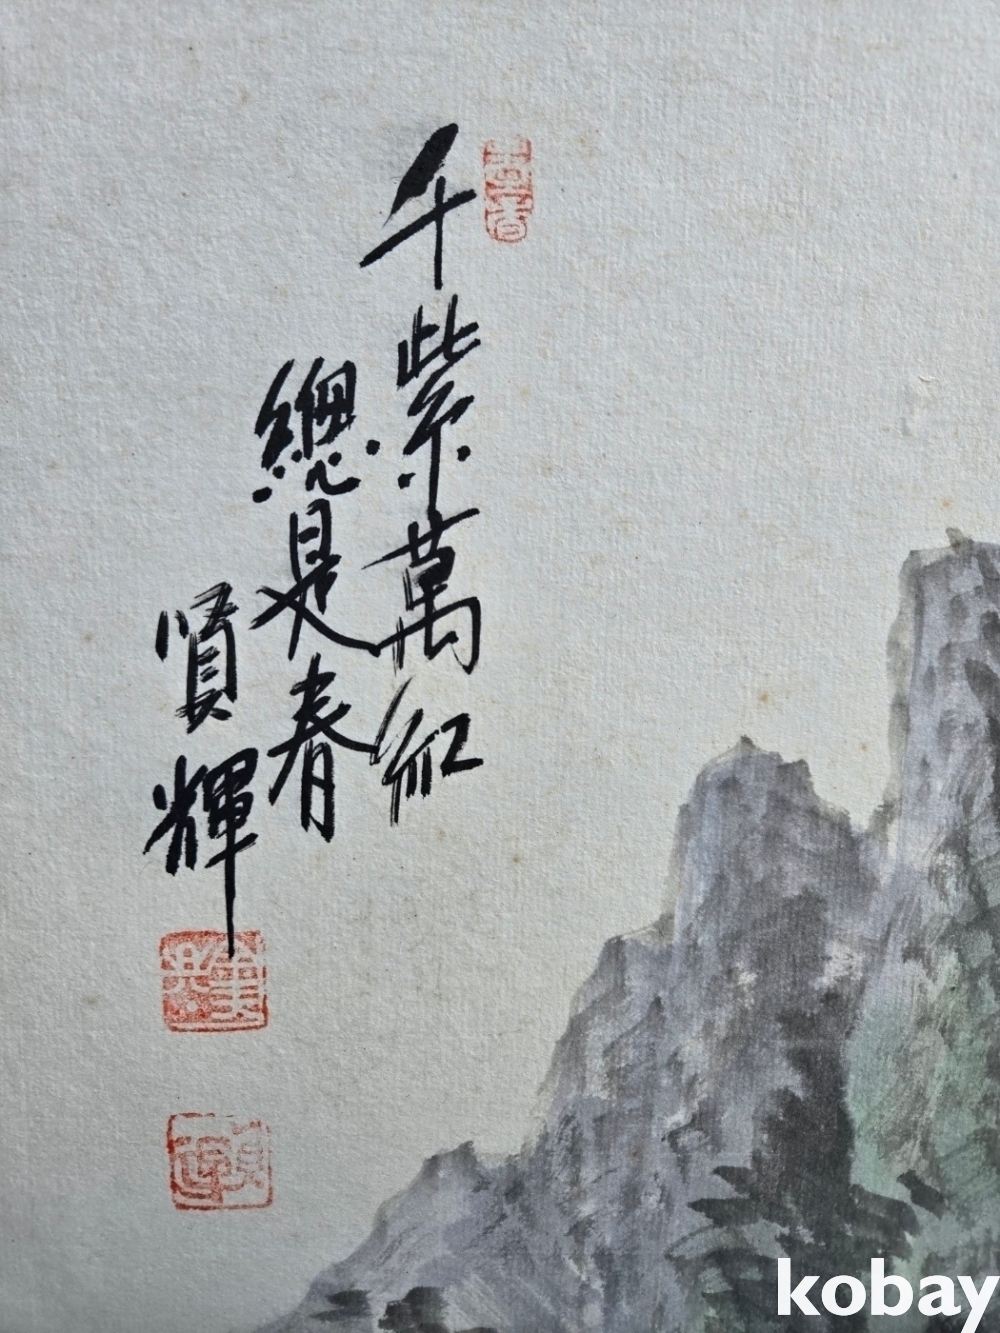 千紫萬紅
總是春
賢輝
kobay